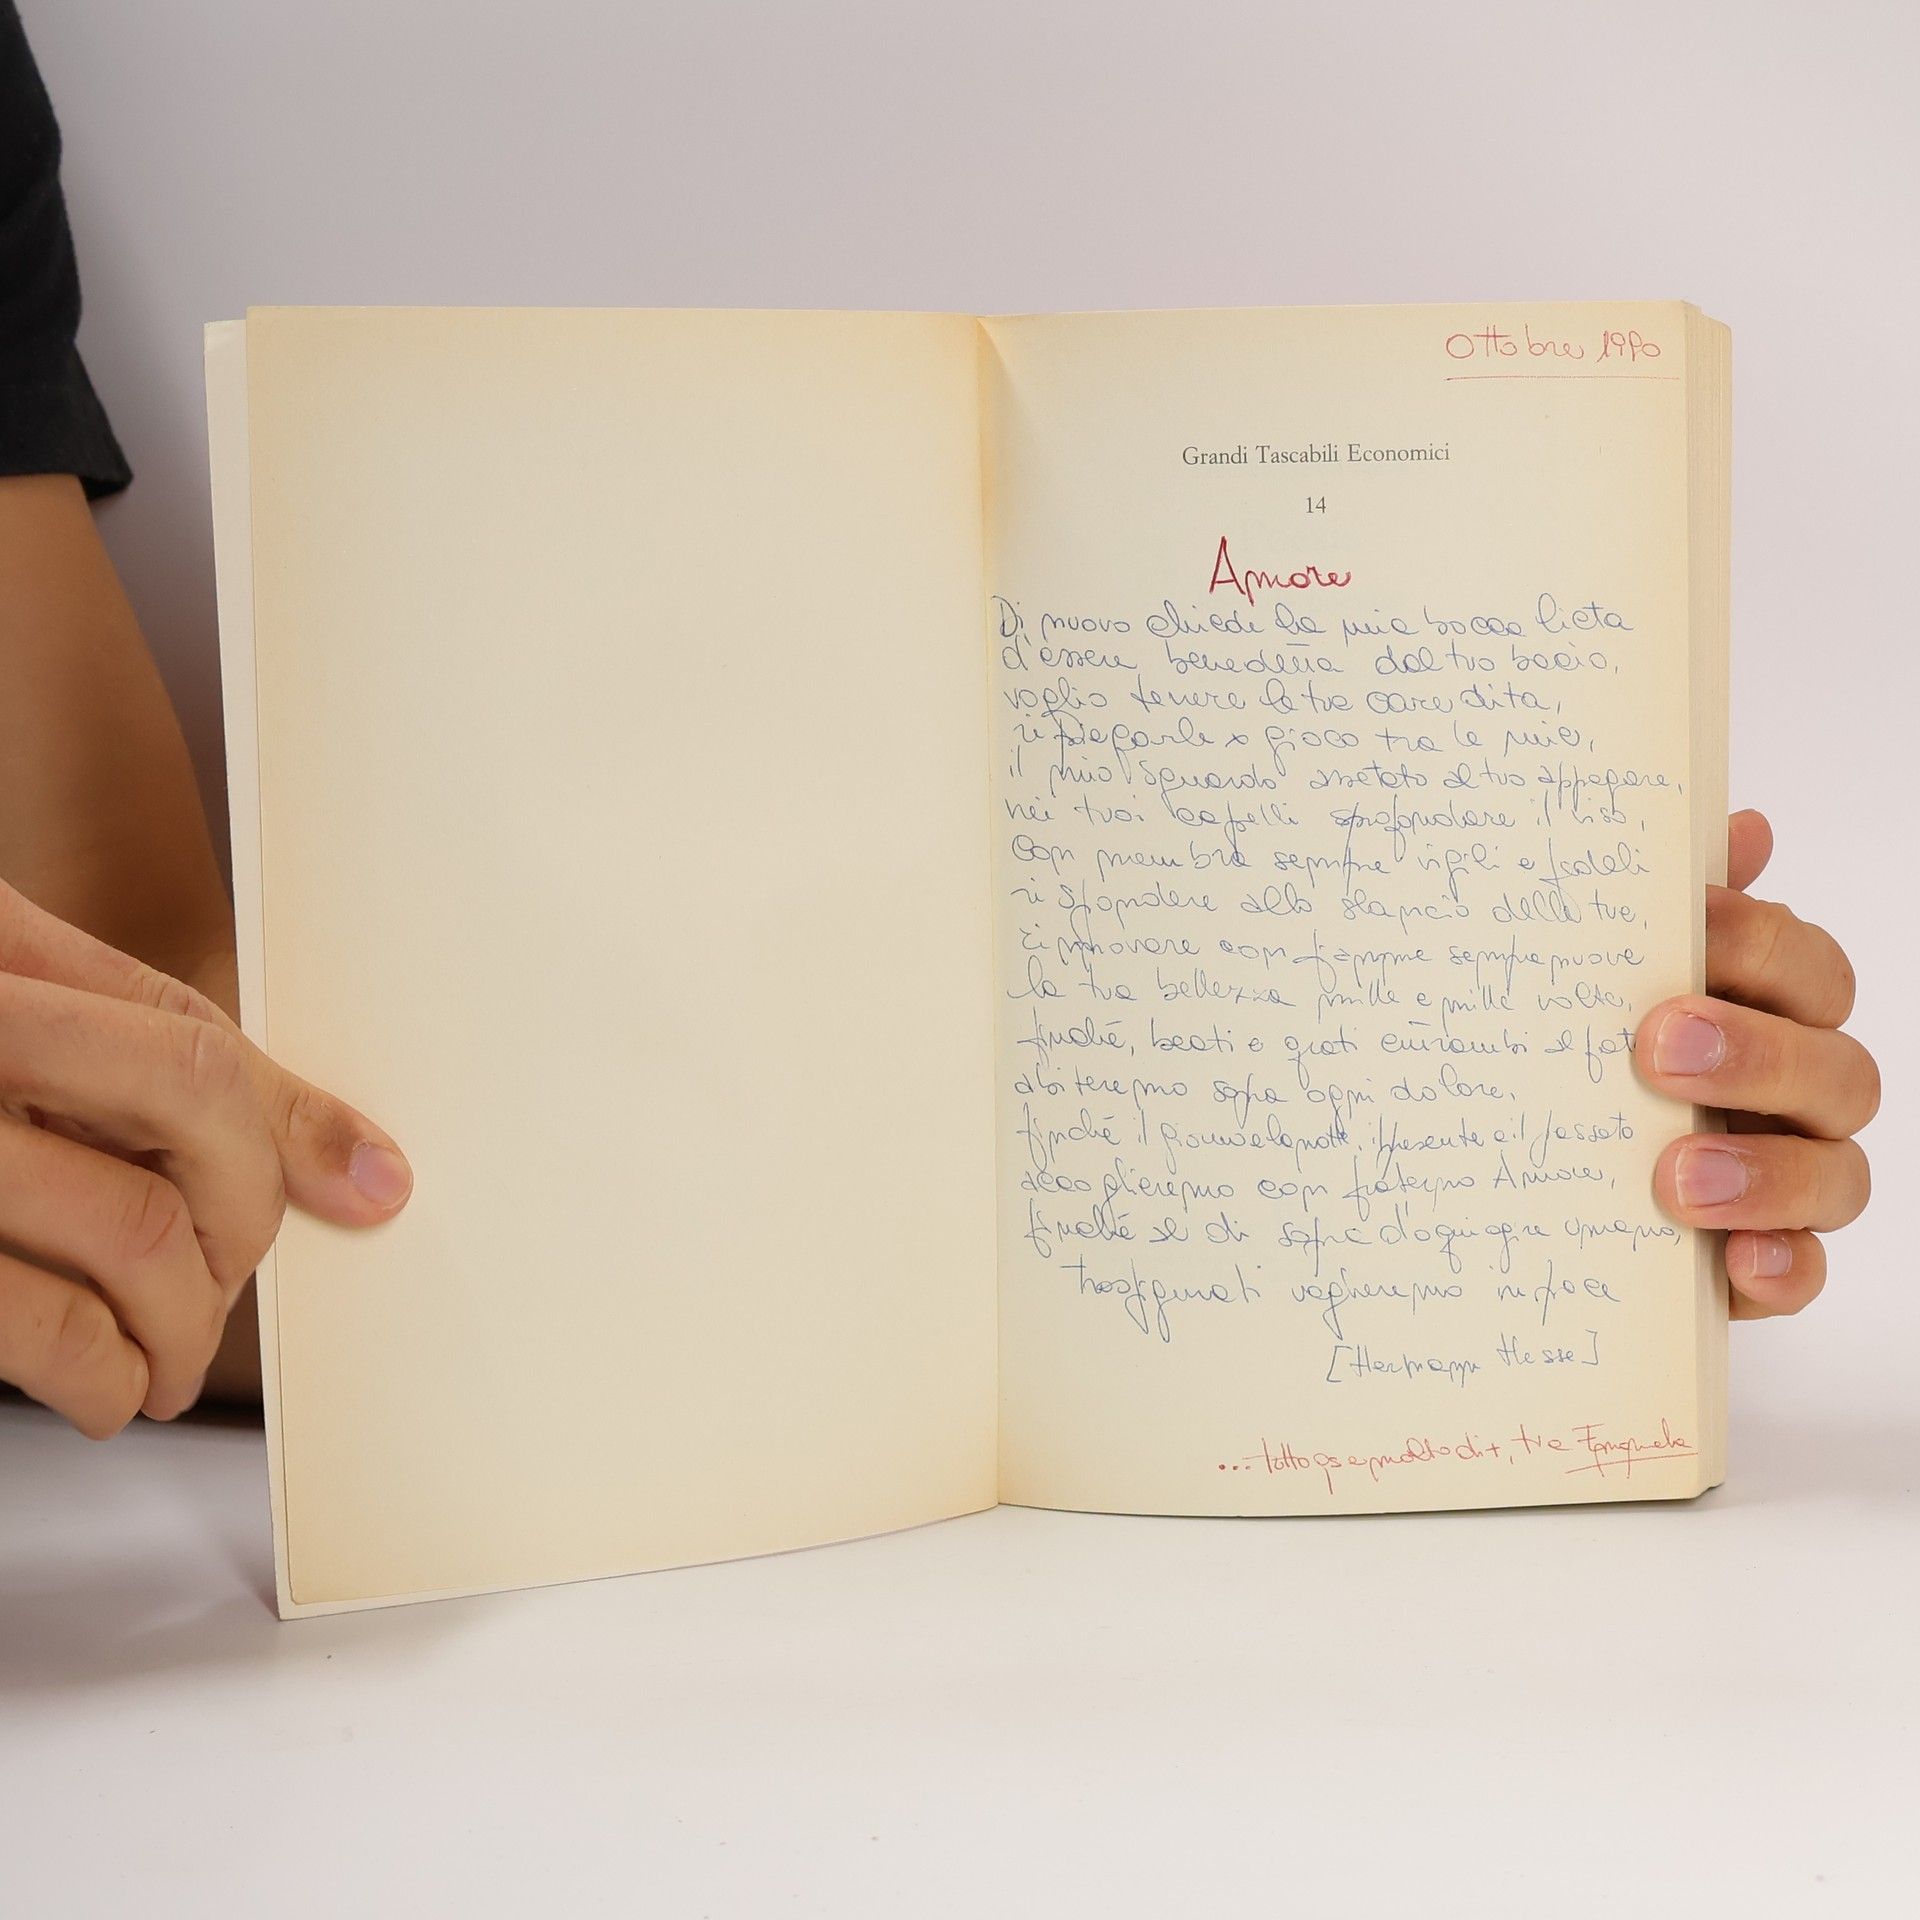 Ottobre 1990
Grandi Tascabili Economici
14
Amore
Di nuovo chiede la mia bocca lieta
d'essere benedetta dal tuo bacio,
voglio tenere le tue care dita,
ripiegarle x gioco tra le mie,
il mio sguardo assetato al tuo appagare,
nei tuoi capelli sprofondare il viso,
con membra sempre vigili e fedeli
rispondere allo slancio delle tue,
rinnovare con fiamme sempre nuove
la tua bellezza mille e mille volte,
finché, beati e grati entrambi al fat
abiteremo sopra ogni dolore,
finché il giorno e la notte, il presente e il passato
accoglieremo con fraterno Amore,
finché al di sopra d'ogni agire umano,
trasfigurati vagheremo in pace
[Hermann Hesse]
... tutto qs e molto di +, tua